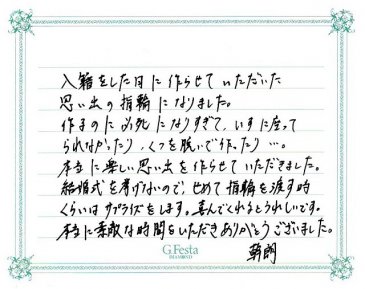 入籍をした日に作らせていただいた
思い出の指輪になりました。
作るのに必死になりすぎて、いすに座って
られなかったり、くつを脱いで作ったり…。
本当に楽しい思い出を作らせていただきました。
結婚式を挙げないので、せめて指輪を渡す時
くらいはサプライズをします。喜んでくれるとうれしいです。
本当に素敵な時間をいただきありがとうございました。
G.Festa
DIAMOND